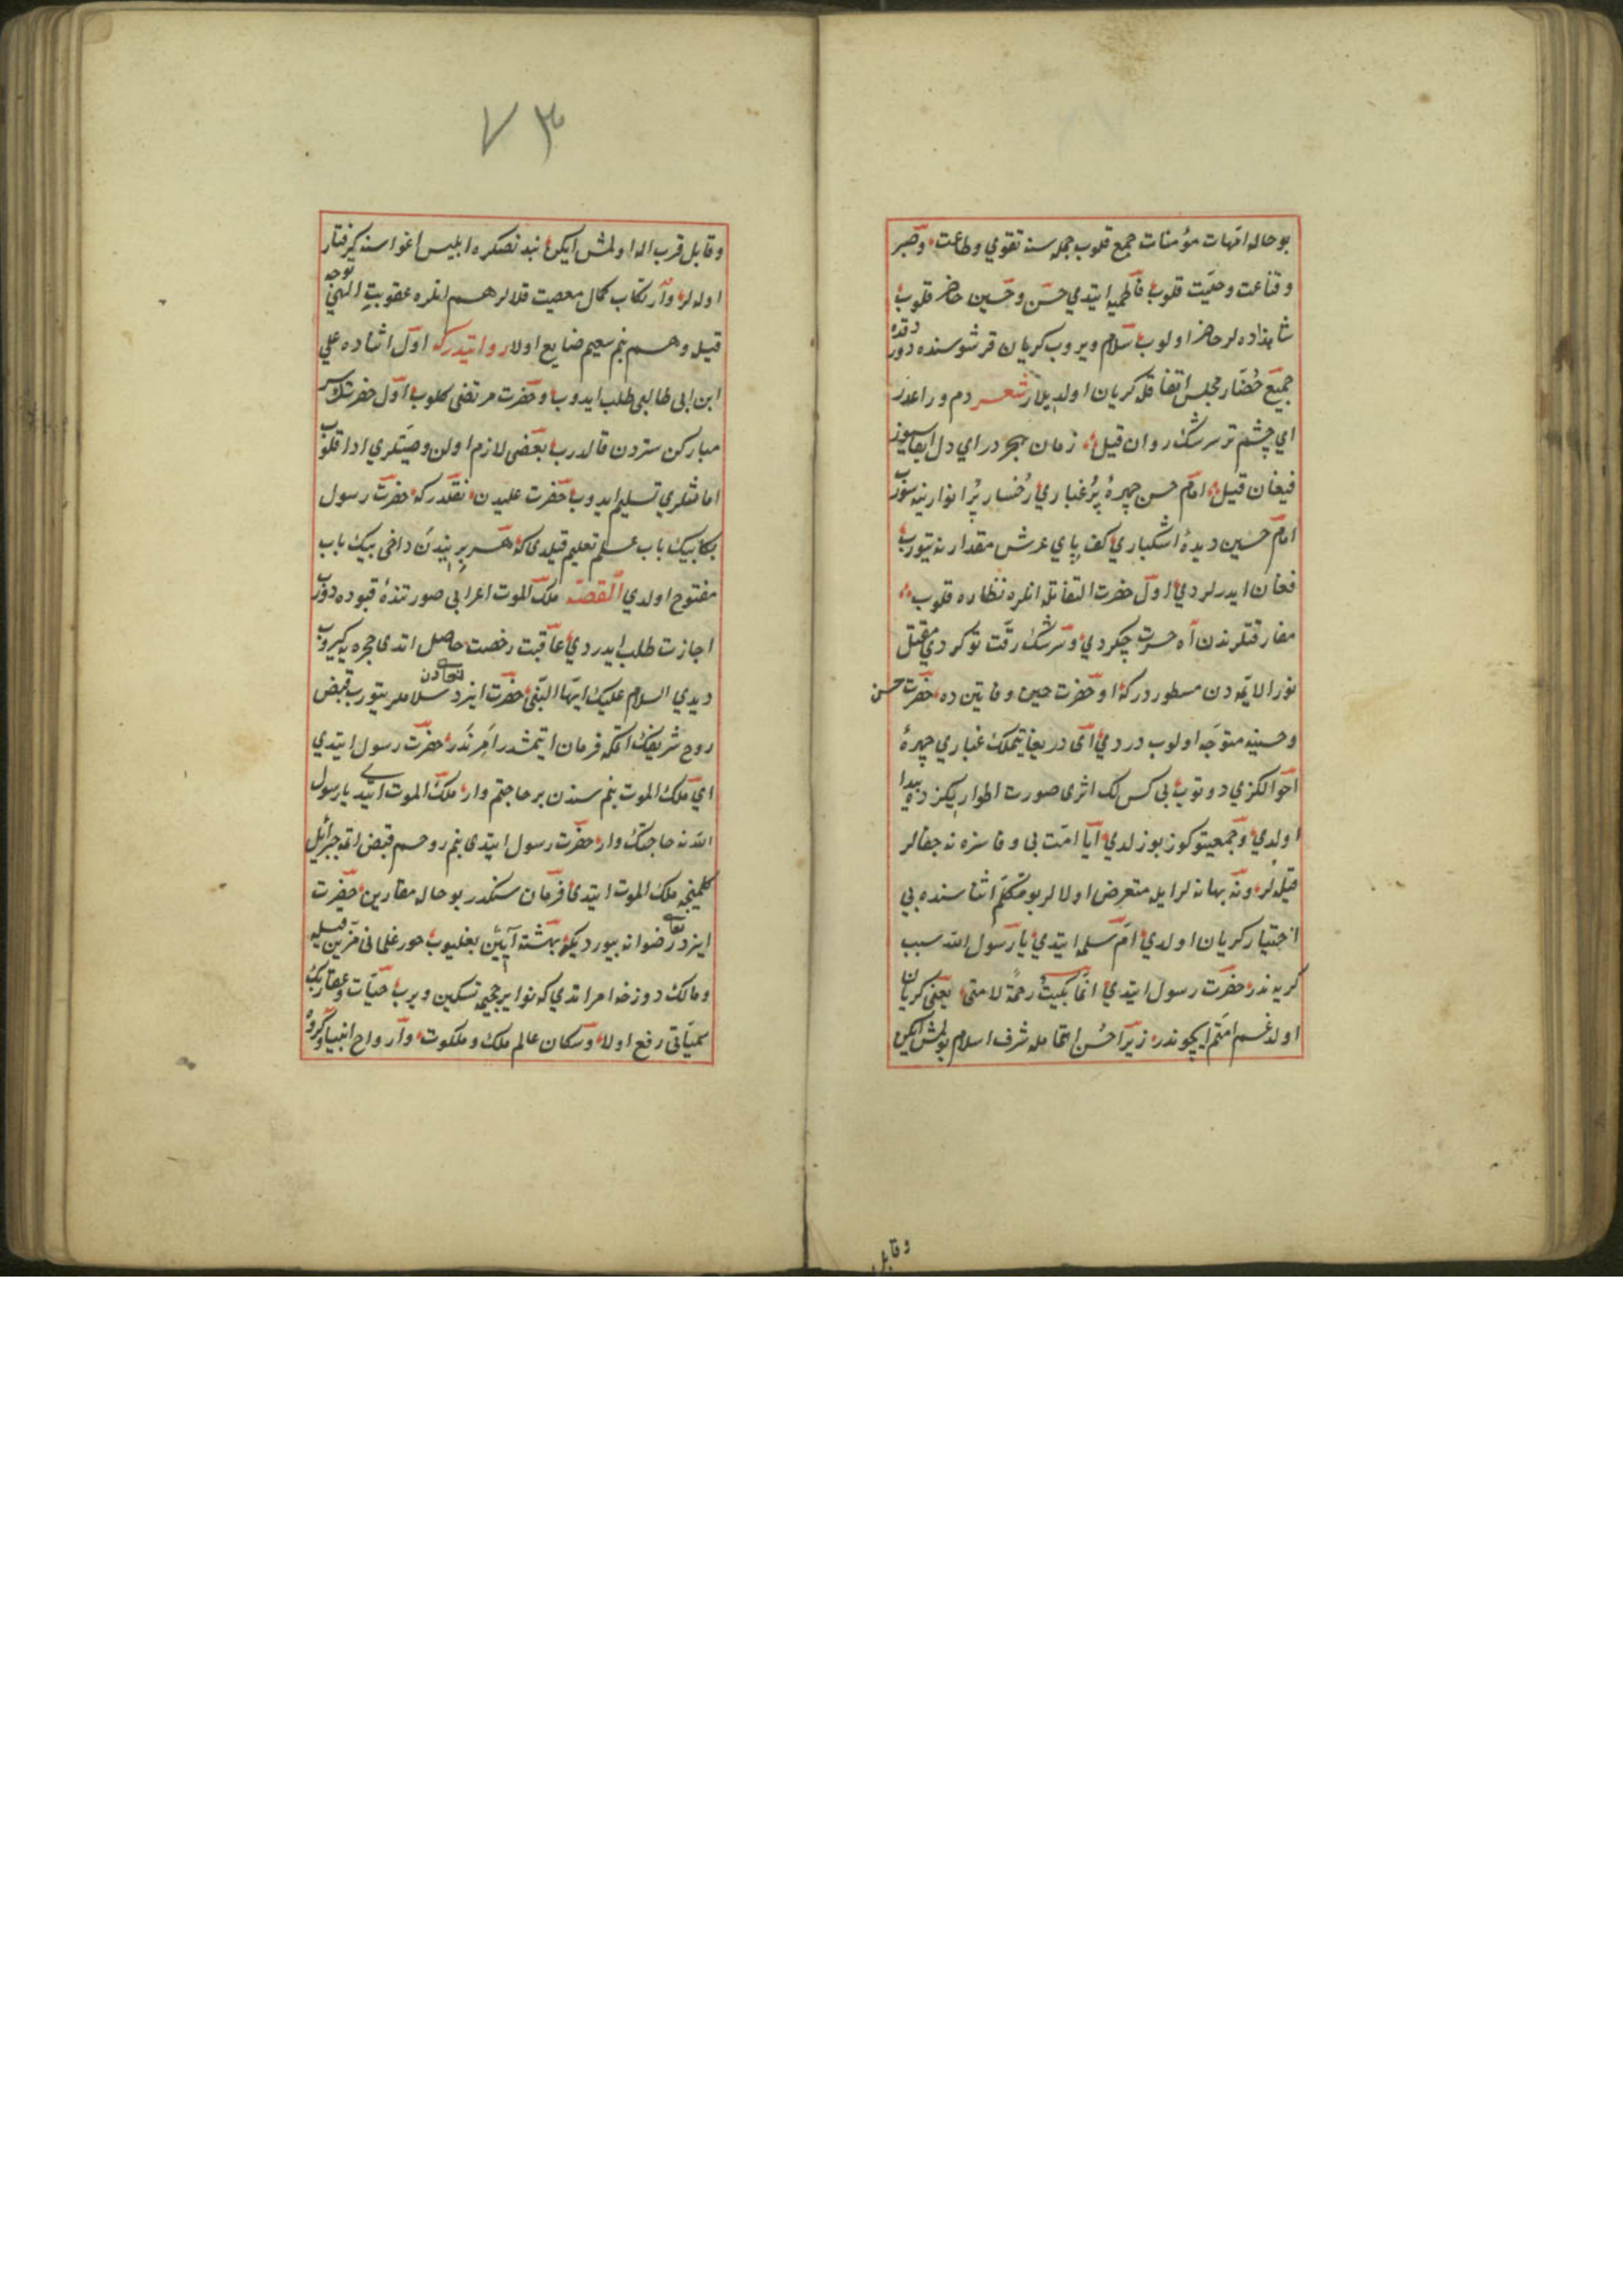 بو حاله امّهات مؤمنات جمع قلوب جمله سنه تقوي وطاعت وصبر
وقناعت وصيّت قلوب فاطميه ايتدي حسن وحسين حاضر قلوب
شاهزاده لر حاضر اولوب سلام ويروب كريان قرشوسنده دوردقده
جميع حُضّار مجلس اتفاقله كريان اولديلار شعر دم وراعدر
اي چشم تر سرشك روان قيل زمان هجر در اي دل
فيغان قيل امام حسن چهرهٔ پُرغباري رُخسار پُرانوارينه سوروب
امام حسين ديدهٔ اشكباري كف پاي عرش مقدارينه يتوروب
فغان ايدرلردي اول حضرت التفاتله انلره نظاره قلوب
مفارقتلرندن آه حسرت چكردي وسرشك رقّت توكردي مقتل
نور الائمّه دن مسطوردركه اوحضرت حين وفاتين ده حضرت حسن
وحسينه متوجّه اولوب دردي اى دريغا يتملك غباري چهرهٔ
احوالكزي دوتوب بي كس لك اثرى صورت اطواريكزده پيدا
اولدي وجمعيتوكوز بوزلدي آيا امّت بي وفا سزه نه جفالر
قيلدلر ونه بهانه لر ايله متعرض اولالر بو تكلّم اثناسنده بي
اختيار كريان اولدي امّ سلمه ايتدي يا رسول الله سبب
كريه ندر حضرت رسول ايتدي انّما بكيتُ رحمةً لامتى يعنى كريان
اولدغم امّتم ايچوندر زيرا حُسن اتمامله شرف اسلام بولمش ايكن
وقابل
٧٣
وقابل قرب اله اولمش ايكن بندنصكره ابليس اغواسنه كرفتار
اوله لر وارتكاب كمال معصيت قلالر هم انلره عقوبت الهى توجه
قيله وهم بنم سعيم ضايع اولا روايتدركه اول اثناده علي
ابن ابى طالبى طلب ايدوب وحضرت مرتضى كلوب اول حضرتك سر
مباركن ستردن قالدرب بعضى لازم اولن وصيّتلري ادا قلوب
امانتلري تسليم ايدوب حضرت عليدن نقلدركه حضرت رسول
بكا بيك باب علم تعليم قيلدى كه هر برينيدن داخى بيك باب
مفتوح اولدي القصّه ملك الموت اعرابى صورتنده قپوده دوروب
اجازت طلب ايدردي عاقبت رخصت حاصل اتدى حجره يه كيروب
ديدي السلام عليك ايّها النّبى حضرت ايزد تعالدن سلاملر يتوروب قبض
روح شريفك اتمكه فرمان ايتمشدر امر ندر حضرت رسول ايتدي
اي ملك الموت بنم سندن بر حاجتم وار ملك الموت ايتدي يا رسول
الله نه حاجتك وار حضرت رسول ايتدى بنم روحم قبض اتمه جبرائيل
كلمينجه ملك الموت ايتدى فرمان سنكدر بو حاله مقارين حضرت
ايزد تعالى رضوانه بيورديكه بهشته آيين بغليوب حور غلمانى مزين قيله
ومالك دوزخه امر اتدي كه نواير جحيمه تسكين ويرب حيّات وعقاربك
سميّاتى رفع اولا وسكان عالم ملك وملكوت وارواح انبيا وكروه